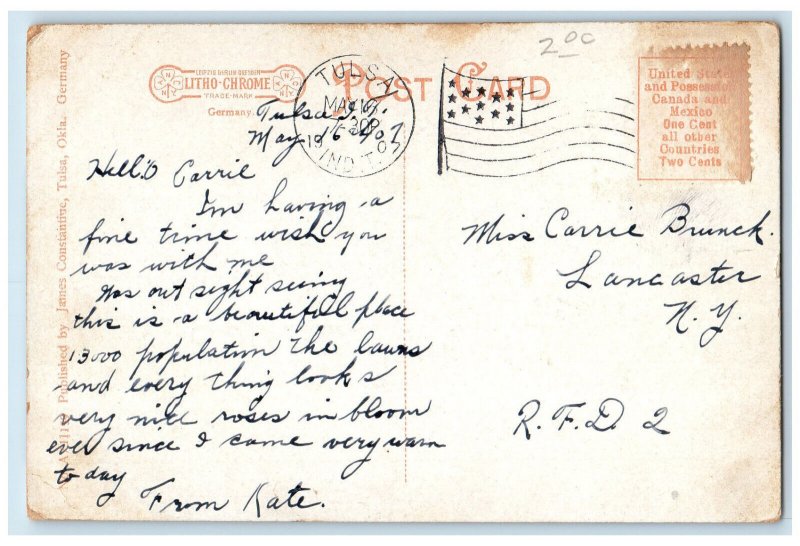 2.00
LEIPZIG BERLIN DRESDEN
LITHO-CHROME
TRADE-MARK
Germany
POST CARD
TULSA
MAY 16
IND. T.
United States
and Possessions
Canada and
Mexico
One Cent
all other
Countries
Two Cents
Published by James Constantine, Tulsa, Okla. Germany
Tulsa I.T.
May 16 - 07
Hello Carrie
I'm having a
fine time wish you
was with me
Was out sight seeing
this is a beautifull place
13000 population the lawns
and every thing looks
very nice roses in bloom
ever since I came very warm
to day
From Kate.
Miss Carrie Brunck.
Lancaster
N.Y.
R.F.D. 2